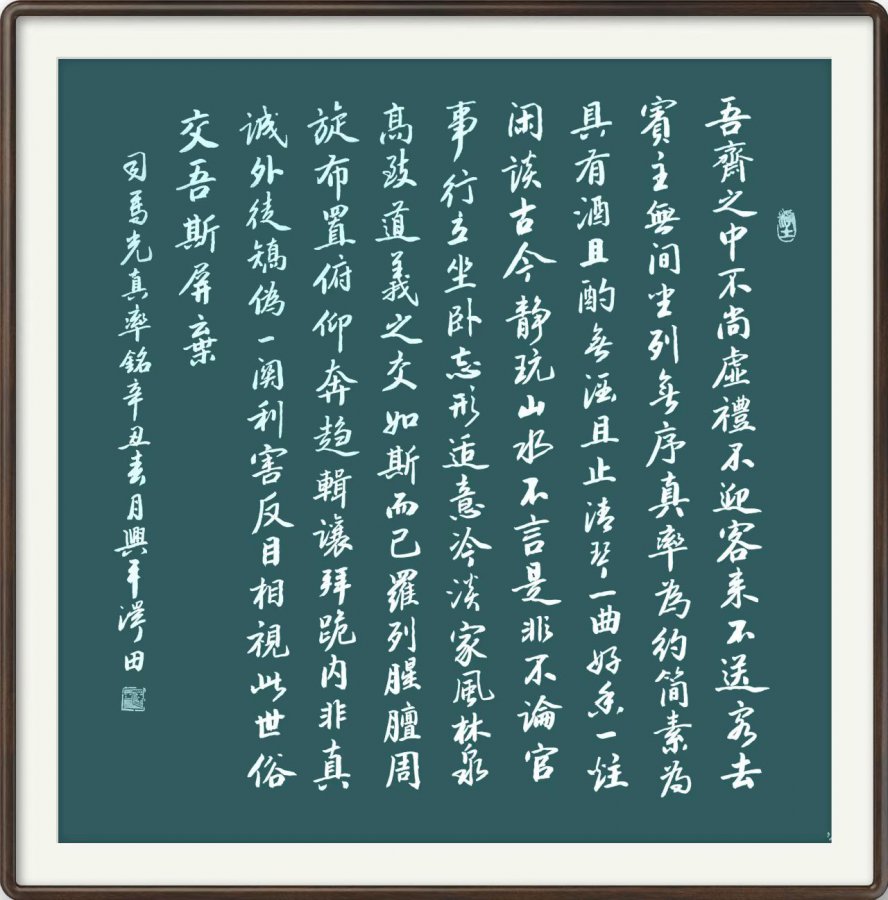 吾齋之中不尚虛禮不迎客来不送客去
賓主無间坐列無序真率為約简素為
具有酒且酌無酒且止清琴一曲好香一炷
闲谈古今静玩山水不言是非不論官
事行立坐卧忘形适意冷淡家風林泉
高致道義之交如斯而已羅列腥膻周
旋布置俯仰奔趋輯讓拜跪内非真
誠外徒矯偽一関利害反目相視此世俗
交吾斯屏棄
司馬光真率銘辛丑春月興平澤田